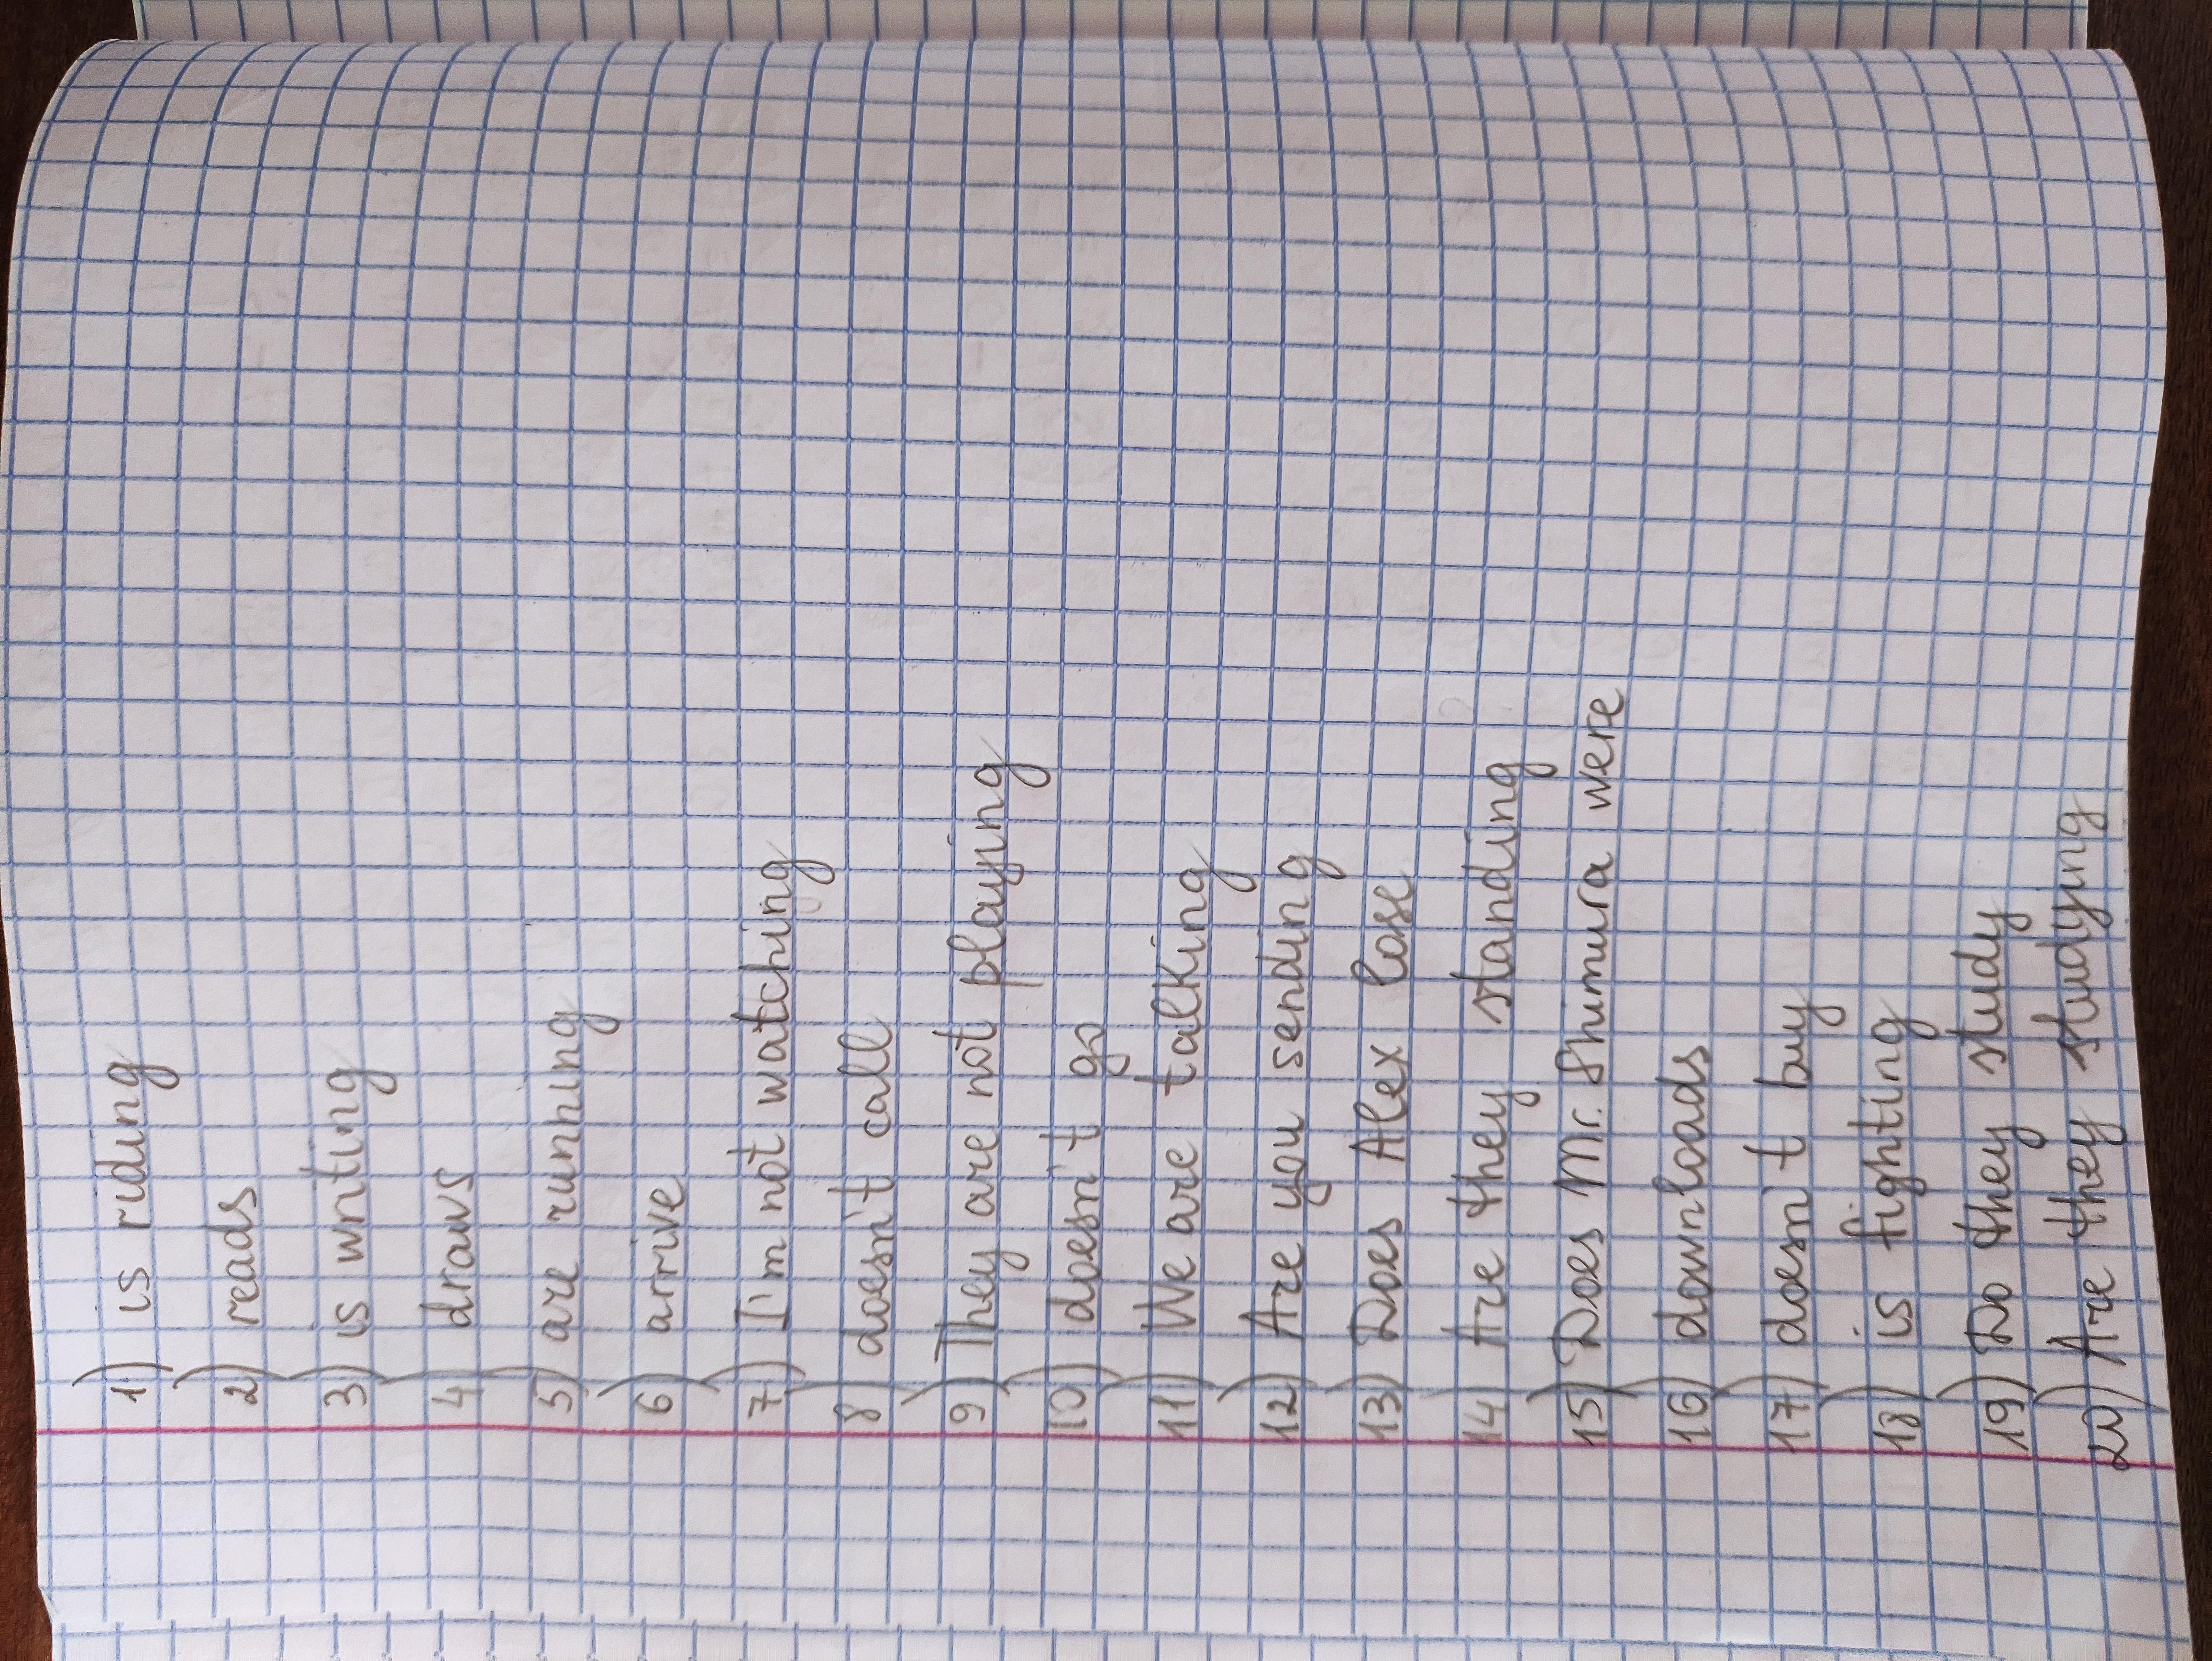 1) is riding
2) reads
3) is writing
4) draws
5) are running
6) arrive
7) I'm not watching
8) doesn't call
9) They are not playing
10) doesn't go
11) We are talking
12) Are you sending
13) Does Alex lose
14) Are they standing
15) Does Mr. Shimura were
16) downloads
17) doesn't buy
18) is fighting
19) Do they study
20) Are they studying